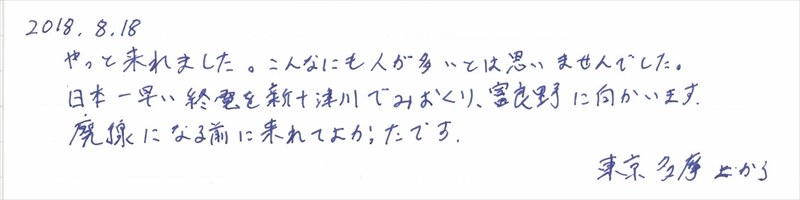 2018.8.18
やっと来れました。こんなにも人が多いとは思いませんでした。
日本一早い終電を新十津川でみおくり、富良野に向かいます.
廃線になる前に来れてよかったです.
東京 多摩 から